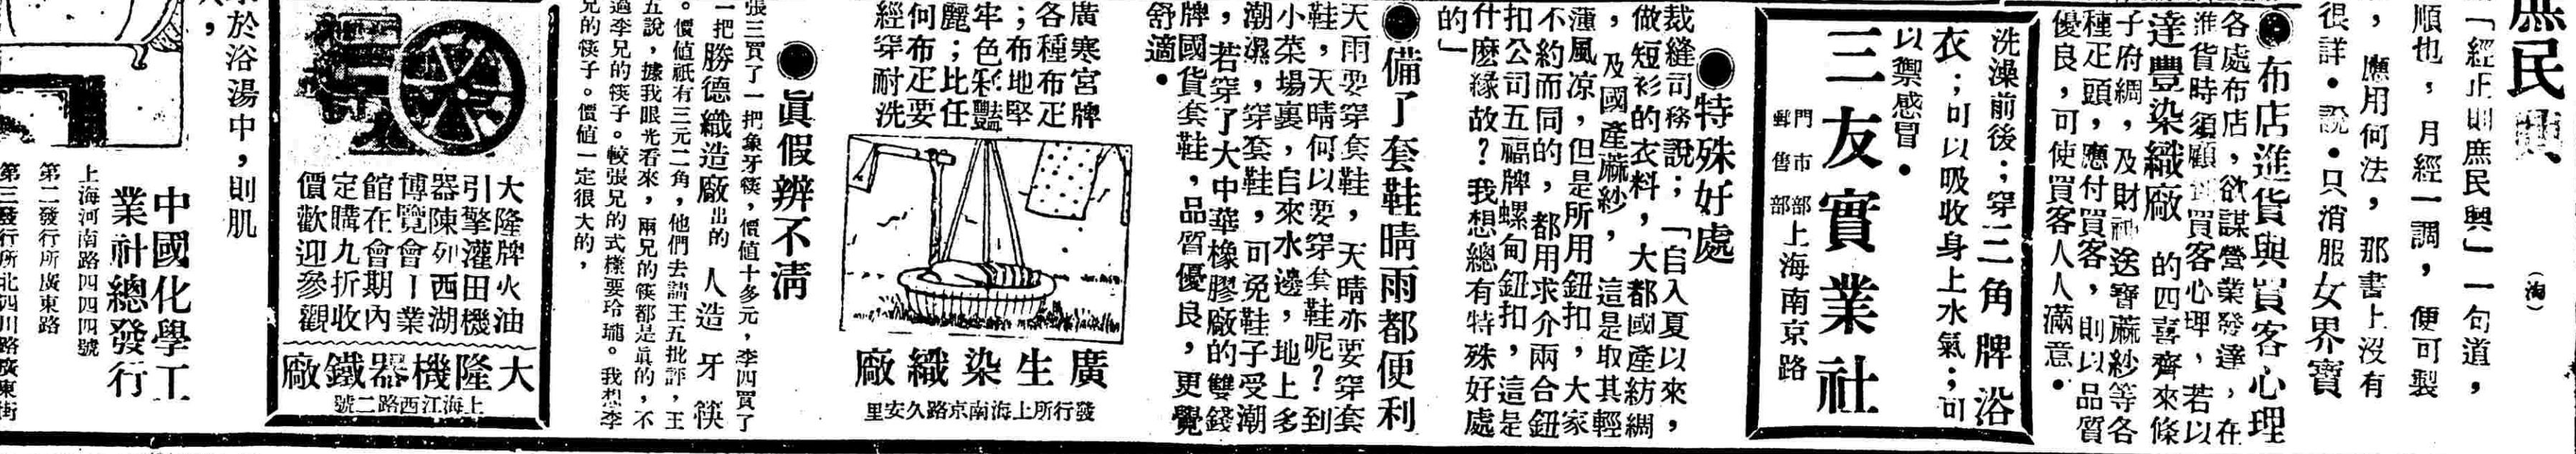 庶民
(海)
「經正則庶民興」一句道，
順也，月經一調，便可製
，應用何法，那書上沒有
很詳。說。只消服女界寶
●布店進貨與買客心理
各處布店，欲謀營業發達，在
進貨時須顧到買客心理，若以
達豐染織廠的四喜齊來條
子府綢，及財神送寶蔴紗等各
種疋頭，應付買客，則以品質
優良，可使買客人人滿意。
洗澡前後；穿三角牌浴
衣；可以吸收身上水氣；可
以禦感冒。
三友實業社
門市部
郵售部
上海南京路
●特殊好處
裁縫司務說；「自入夏以來，
做短衫的衣料，大都國產紡綢
，及國產蔴紗，這是取其輕
薄風凉，但是所用鈕扣，大家
不約而同的，都用求介兩合鈕
扣公司五福牌螺甸鈕扣，這是
什麽緣故？我想總有特殊好處
的」
●備了套鞋晴雨都便利
天雨要穿套鞋，天晴亦要穿套
鞋，天晴何以要穿套鞋呢？到
小菜場裏，自來水邊，地上多
潮濕，穿套鞋，可免鞋子受潮
，若穿了大中華橡膠廠的雙錢
牌國貨套鞋，品質優良，更覺
舒適。
廣寒宮牌
各種布疋
；布地堅
牢色彩豔
麗；比任
何布疋要
經穿耐洗
廣生染織廠
發行所上海南京路久安里
●眞假辨不淸
張三買了一把象牙筷，價值十多元，李四買了
一把勝德織造廠出的人造牙筷
。價值祇有三元二角，他們去請王五批評，王
五說，據我眼光看來，兩兄的筷都是眞的，不
過李兄的筷子。較張兄的式樣要玲瓏。我想李
兄的筷子。價值一定很大的，
大隆牌火油
引擎灌田機
器陳列西湖
博覽會—業
館在會期內
定購九折收
價歡迎參觀
大隆機器鐵廠
上海江西路二號
於浴湯中，則肌
，
中國化學工
業社總發行
上海河南路四四四號
第二發行所廣東路
第三發行所北四川路廣東街